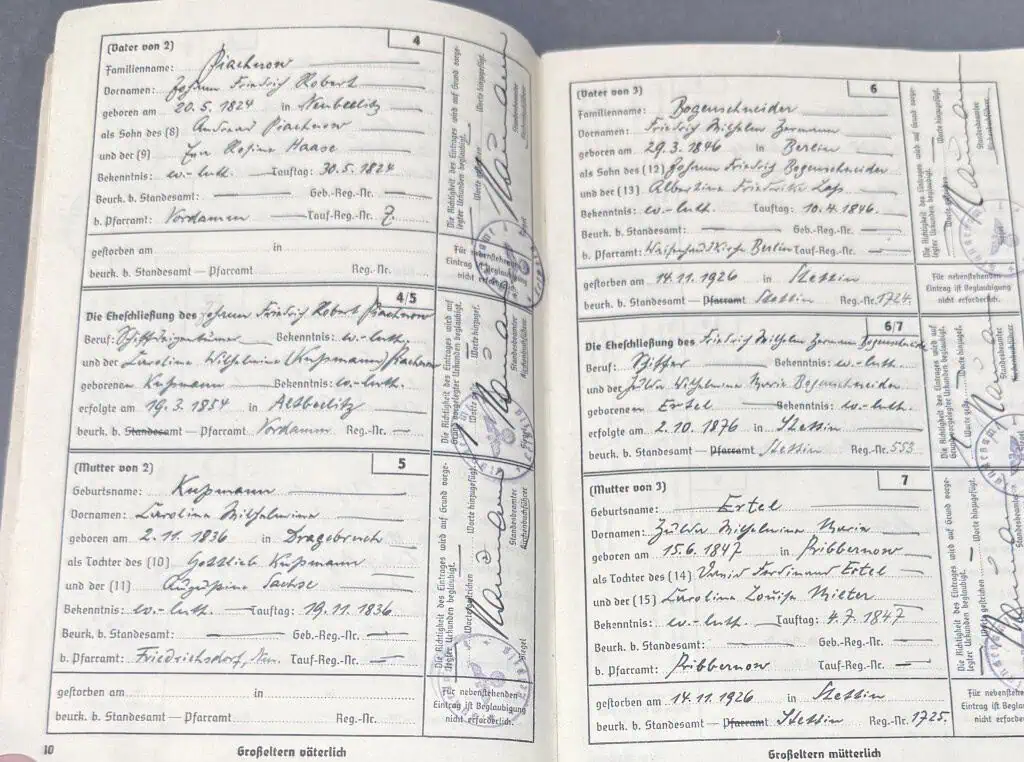 (Vater von 2) 4
Familienname: Piachnow
Vornamen: Johann Friedrich Robert
geboren am 20.5.1824 in Neubeelitz
als Sohn des (8) Andreas Piachnow
und der (9) Eva Rosine Haase
Bekenntnis: ev.-luth. Tauftag: 30.5.1824
Beurk. b. Standesamt: — Geb.-Reg.-Nr. —
b. Pfarramt: Vordamm — Tauf-Reg.-Nr. 7.
gestorben am in
beurk. b. Standesamt — Pfarramt Reg.-Nr.
Die Richtigkeit des Eintrages wird auf Grund vorge-
legter Urkunden beglaubigt.
Worte hinzugefügt.
Standesbeamter
Für nebenstehenden
Eintrag ist Beglaubigung
nicht erforderlich.
4/5
Die Eheschließung des Johann Friedrich Robert Piachnow
Beruf: Schiffseigentümer Bekenntnis: ev.-luth.
und der Caroline Wilhelmine (Kußmann) Piachnow
geborenen Kußmann Bekenntnis: ev.-luth.
erfolgte am 19.3.1854 in Altbeelitz
beurk. b. Standesamt — Pfarramt Vordamm Reg.-Nr. —
Die Richtigkeit des Eintrages wird auf
Grund vorgelegter Urkunden beglaubigt.
Worte hinzugef.
Standesbeamter
Kirchenbuchführer.
(Mutter von 2) 5
Geburtsname: Kußmann
Vornamen: Caroline Wilhelmine
geboren am 2.11.1836 in Dragebruch
als Tochter des (10) Gottlieb Kußmann
und der (11) Augustine Sachse
Bekenntnis: ev.-luth. Tauftag: 19.11.1836.
Beurk. b. Standesamt: — Geb.-Reg.-Nr. —
b. Pfarramt: Friedrichsdorf, Nm. Tauf-Reg.-Nr. —
gestorben am in
beurk. b. Standesamt — Pfarramt Reg.-Nr.
Die Richtigkeit des Eintrages wird auf Grund vorge-
legter Urkunden beglaubigt.
Worte gestrichen — Worte hinzugefügt.
Standesbeamter
Kirchenbuchführer
Siegel
Für nebenstehenden
Eintrag ist Beglaubigung
nicht erforderlich.
10
Großeltern väterlich
(Vater von 3) 6
Familienname: Bogenschneider
Vornamen: Friedrich Wilhelm Hermann
geboren am 29.3.1846 in Berlin
als Sohn des (12) Johann Friedrich Bogenschneider
und der (13) Albertine Friedrike
Bekenntnis: ev.-luth. Tauftag: 10.4.1846.
Beurk. b. Standesamt: — Geb.-Reg.-Nr. —
b. Pfarramt: Waisenhauskirche Berlin Tauf-Reg.-Nr. —
gestorben am 14.11.1926 in Stettin
beurk. b. Standesamt — Pfarramt Stettin Reg.-Nr. 1724.
Die Richtigkeit des Eintrages wird auf Grund vorge-
legter Urkunden beglaubigt.
Worte hinzugefügt.
Standesbeamter
Kirchenbuchführer.
Für nebenstehenden
Eintrag ist Beglaubigung
nicht erforderlich.
6/7
Die Eheschließung des Friedrich Wilhelm Hermann Bogenschneider
Beruf: Schiffer Bekenntnis: ev.-luth.
und der Hulda Wilhelmine Marie Bogenschneider
geborenen Ertel Bekenntnis: ev.-luth.
erfolgte am 2.10.1876 in Stettin
beurk. b. Standesamt — Pfarramt Stettin Reg.-Nr. 553
Die Richtigkeit des Eintrages wird auf
Grund vorgelegter Urkunden beglaubigt.
Standesbeamter
(Mutter von 3) 7
Geburtsname: Ertel
Vornamen: Hulda Wilhelmine Marie
geboren am 15.6.1847 in Pribbernow
als Tochter des (14) Ferdinand Ertel
und der (15) Caroline Louise Mieter
Bekenntnis: ev.-luth. Tauftag: 4.7.1847
Beurk. b. Standesamt: — Geb.-Reg.-Nr. —
b. Pfarramt: Pribbernow Tauf-Reg.-Nr. —
gestorben am 14.11.1926 in Stettin
beurk. b. Standesamt — Pfarramt Stettin Reg.-Nr. 1725.
Die Richtigkeit des Eintrages wird auf Grund vorge-
legter Urkunden beglaubigt.
Worte gestrichen — Worte hinzugefügt.
Standesbeamter
Für nebenstehen
Eintrag ist Beglau
nicht erforder
Großeltern mütterlich